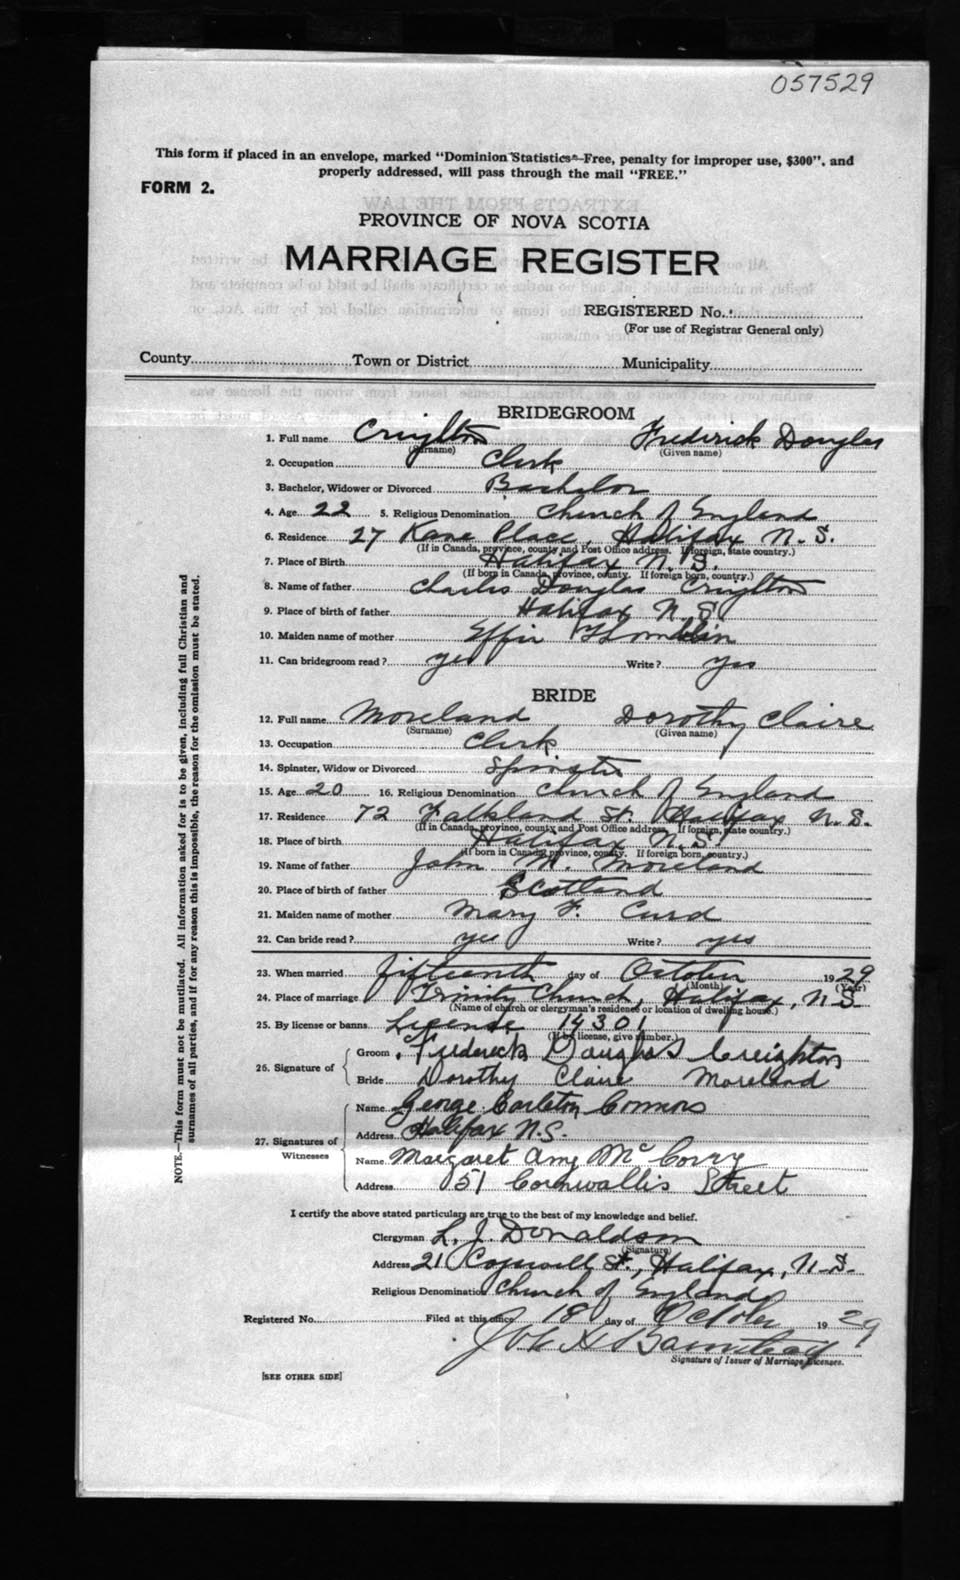 057529
This form if placed in an envelope, marked "Dominion Statistics-Free, penalty for improper use, $300", and
properly addressed, will pass through the mail "FREE."
FORM 2.
PROVINCE OF NOVA SCOTIA
MARRIAGE REGISTER
REGISTERED No.
(For use of Registrar General only)
County Town or District Municipality
BRIDEGROOM
1. Full name Creighton Frederick Douglas
(Surname) (Given name)
2. Occupation Clerk
3. Bachelor, Widower or Divorced Bachelor
4. Age 22 5. Religious Denomination Church of England
6. Residence 27 Kane Place, Halifax N.S.
(If in Canada, province, county and Post Office address. If foreign, state country.)
7. Place of Birth Halifax N.S.
(If born in Canada, province, county. If foreign born, country.)
8. Name of father Charles Douglas Creighton
9. Place of birth of father Halifax N.S.
10. Maiden name of mother Effie
11. Can bridegroom read? yes Write? yes
BRIDE
12. Full name Moreland Dorothy Claire
(Surname) (Given name)
13. Occupation Clerk
14. Spinster, Widow or Divorced Spinster
15. Age 20 16. Religious Denomination Church of England
17. Residence 72 Falkland St. Halifax N.S.
(If in Canada, province, county and Post Office address. If foreign, state country.)
18. Place of birth Halifax N.S.
(If born in Canada, province, county. If foreign born, country.)
19. Name of father John M. Moreland
20. Place of birth of father Scotland
21. Maiden name of mother Mary F. Curd
22. Can bride read? yes Write? yes
23. When married fifteenth day of October 1929
(Month) (Year)
24. Place of marriage Trinity Church, Halifax, N.S.
(Name of church or clergyman's residence or location of dwelling house.)
25. By license or banns License 14301
(If by license, give number.)
26. Signature of Groom Frederick Douglas Creighton
Bride Dorothy Claire Moreland
27. Signatures of Witnesses Name George Carleton Connors
Address Halifax N.S.
Name Margaret Amy McCovry
Address 51 Cornwallis Street
I certify the above stated particulars are true to the best of my knowledge and belief.
Clergyman L. J. Donaldson
(Signature)
Address 21 Cogswell St., Halifax, N.S.
Religious Denomination Church of England
Registered No. Filed at this office 18 day of October 1929
Signature of Issuer of Marriage Licenses.
[SEE OTHER SIDE]
NOTE.—This form must not be mutilated. All information asked for is to be given, including full Christian and
surnames of all parties, and if for any reason this is impossible, the reason for the omission must be stated.